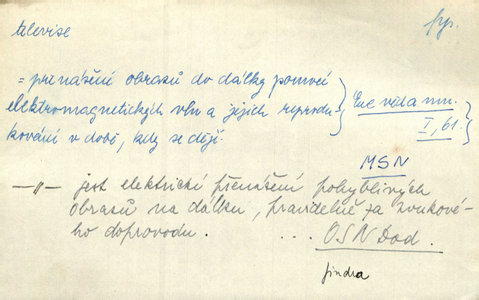 televise
fys.
= přenášení obrazů do dálky pomocí
elektromagnetických vln a jejich reprodu-
kování v době, kdy se dějí.
I, 61.
MSN
—„— jest elektrické přenášení pohyblivých
obrazů na dálku, pravidelně za zvukové-
ho doprovodu. ... OSN Dod.
Jindra